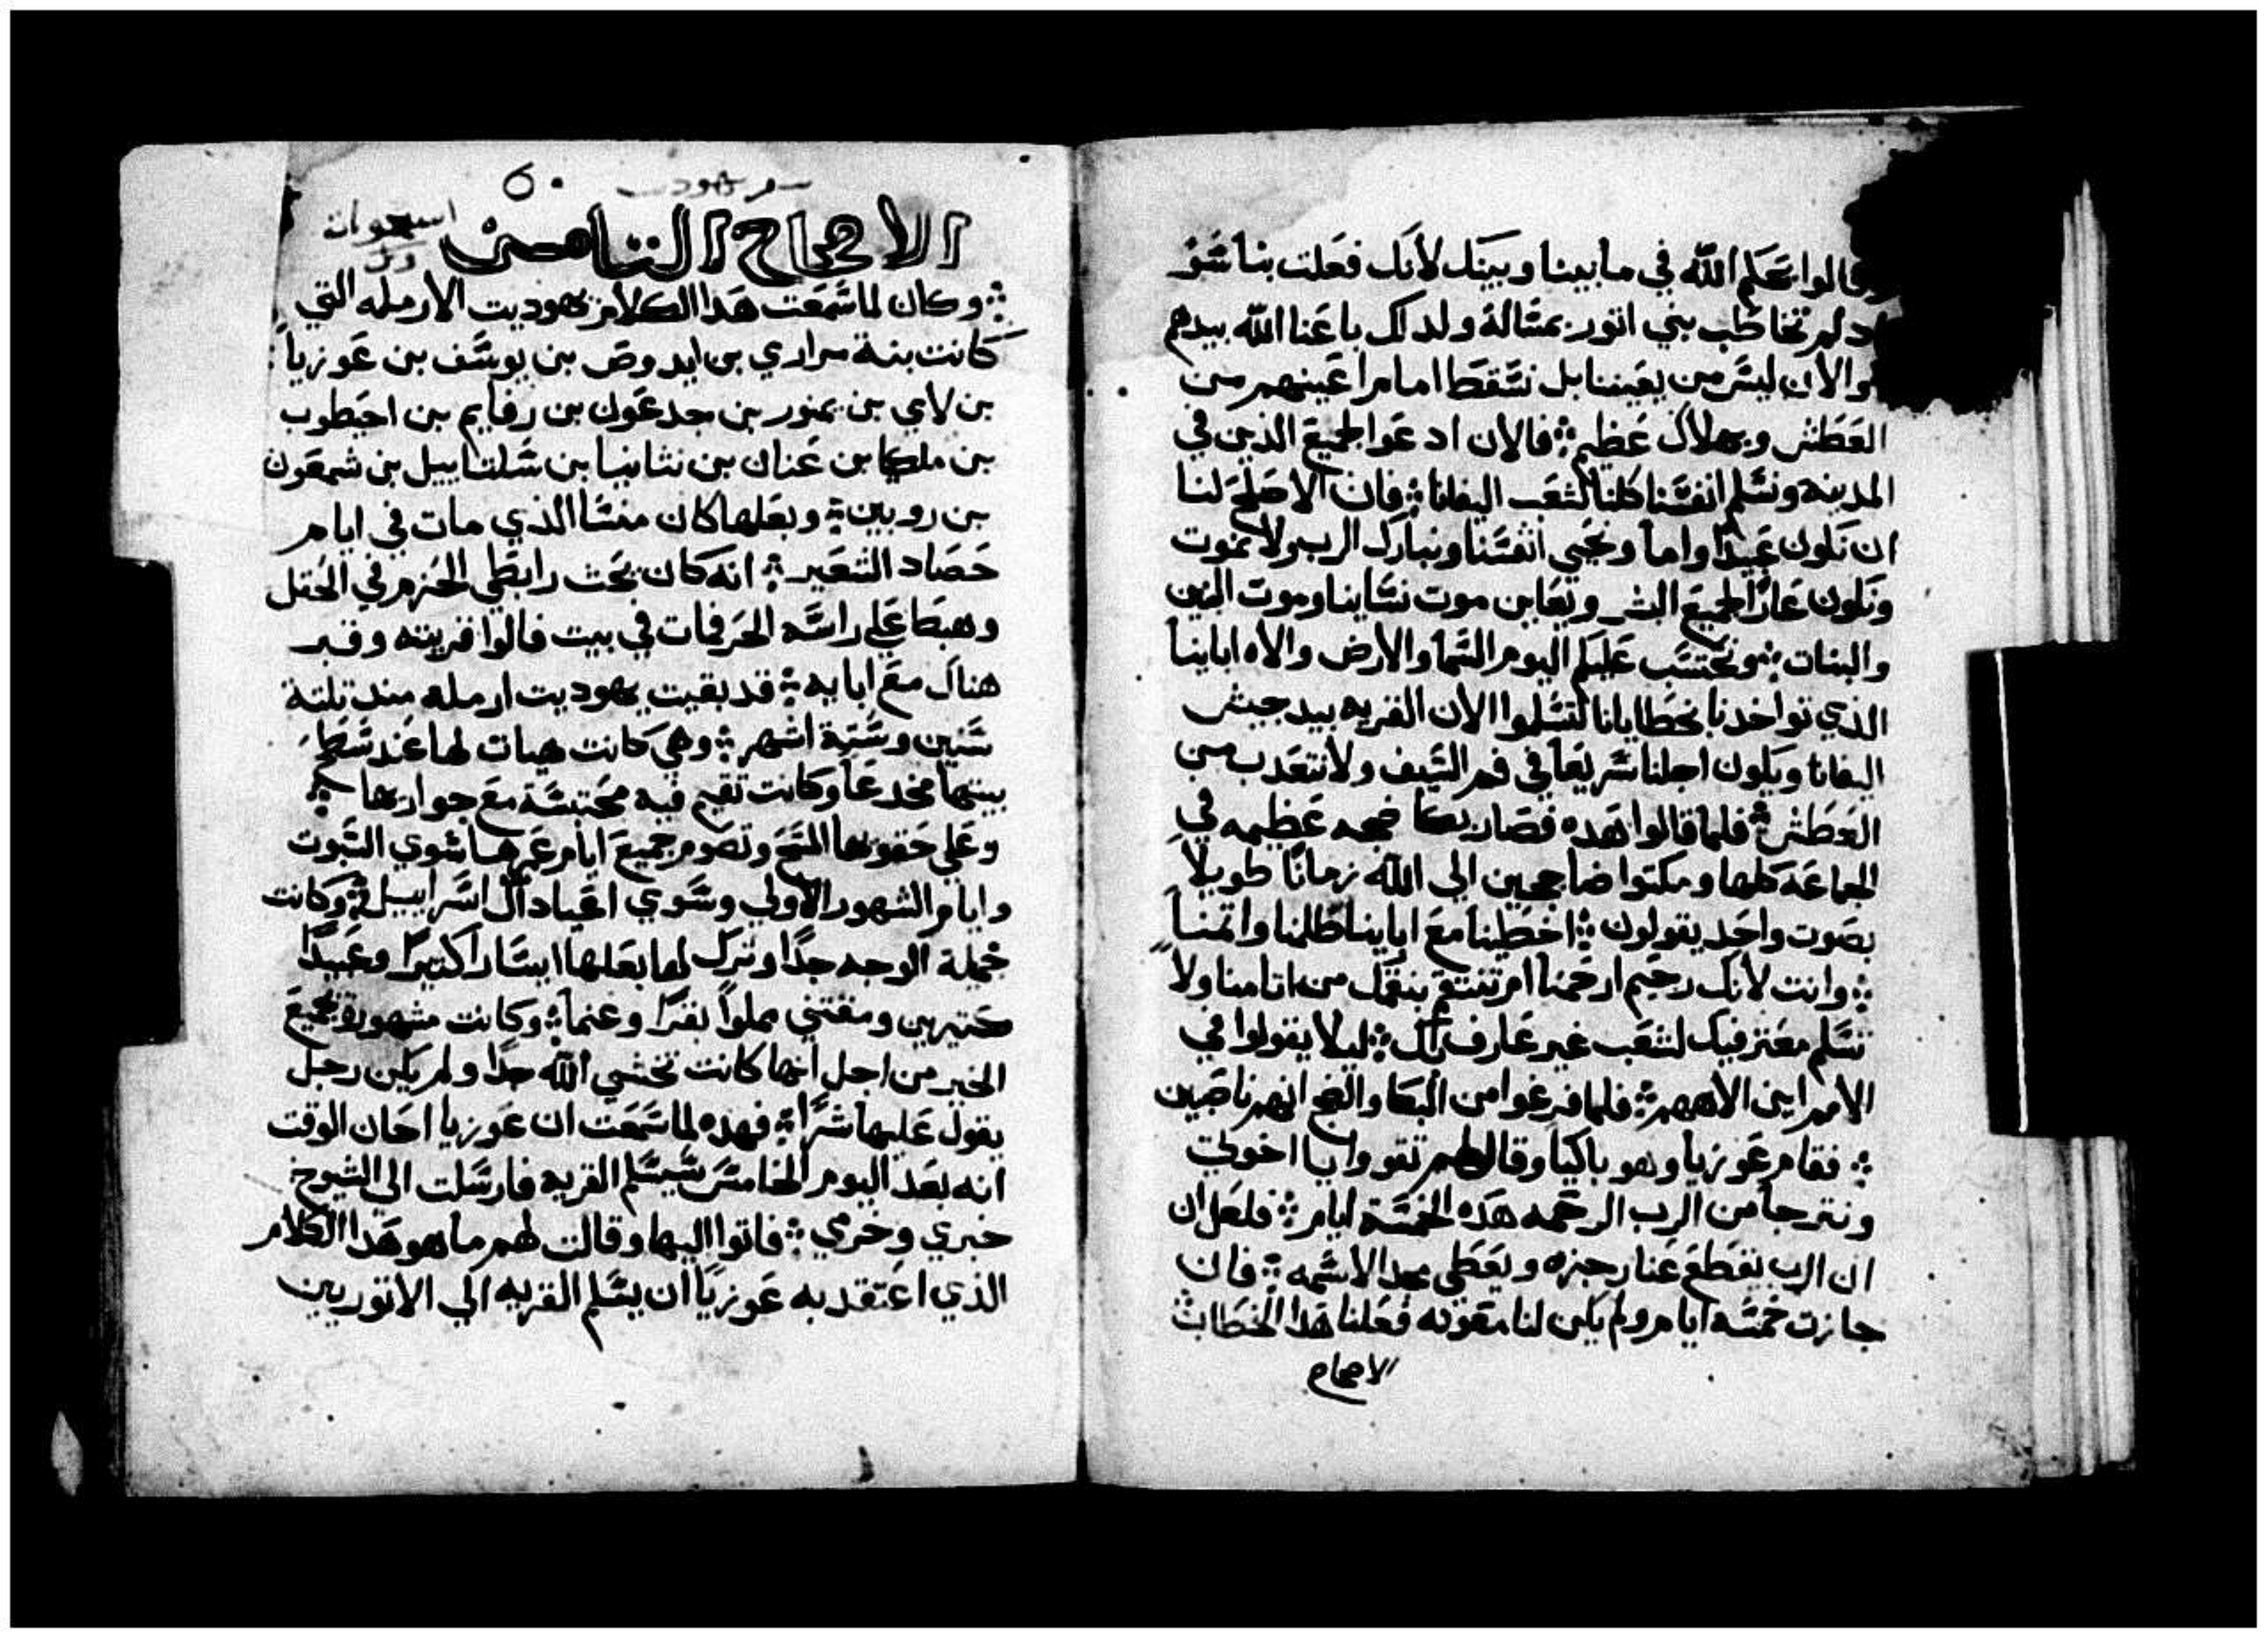 وقالوا يحكم الله في مابيننا وبينك لانك فعلت بنا شو
اد لم تخاطب بني اتور بمسالة ولدلك باعنا الله بيدهم
والان ليس من يعيننا بل نسقط امام اعينهم من
العطش وبهلاك عظيم فالان ادعوا لجميع الذين في
المدينه ونسلم انفسنا كلنا لشعب اليفانا فان الاصلح لنا
ان نكون عبيدا واما ونحيي انفسنا ونبارك الرب ولا نموت
ونكون عارا لجميع البشر ونعاين موت نساينا وموت البنين
والبنات ونحتسب عليكم اليوم السما والارض والاه اباينا
الذي تواخدنا بخطايانا لتسلموا الان القريه بيد جيش
اليفانا ويكون اجلنا سريعا في فم السيف ولا نتعدب من
العطش فلما قالوا هده فصار بكا ضجه عظيمه في
الجماعه كلها ومكتوا ضاجين الي الله زمانا طويلا
بصوت واحد يقولون اخطينا مع اباينا ظلمنا واتمنا
وانت لانك رحيم ارحمنا ام تنتقم بنقمتك من اتامنا ولا
تسلم معترفيك لشعب غير عارف لك ليلا يقولوا في
الامم اين الاههم فلما فرغوا من البكا والضج انهم ناصتين
فقام عوزيا وهو باكيا وقال لهم تقووا يا اخوتي
ونترجا من الرب الرحمه هده الخمسة ايام فلعل ان
ان الرب نقطع عنا رجزه ويعطي مجدا لاسمه فان
جازت خمسه ايام ولم يكن لنا معونه فعلنا هدا الخطاب
الاصحاح
سفر يهوديت
الاصحاح التامن
وكان لما سمعت هدا الكلام يهوديت الارمله التي
كانت بنة مراري بن ايدوص بن يوسف بن عوزيا
بن لاي بن يمنور بن جدعون بن رفايم بن احيطوب
بن ملكيا بن عنان بن نتانيا بن شلتاييل بن شمعون
بن روبين وبعلها كان منسا الذي مات في ايام
حصاد الشعير انه كان يحث رابطي الحزم في الحقل
وهبط علي راسه الحر فمات في بيت فالوا قريته وقبر
هناك مع ابايه قد بقيت يهوديت ارمله مند تلتة
سنين وستة اشهر وهي كانت هيات لها عند سطح
بيتها مخدعا وكانت تقيم فيه محتبسة مع جوارها
وعلي حقويها المسح وتصوم جميع ايام عمرها سوي السبوت
وايام الشهور الاولي وسوي اعياد ال اسراييل وكانت
جميلة الوجه جدا وترك لها بعلها ايسارا كتيرا وعبيدا
كتيرين ومقتني مملوا بقرا وغنما وكانت مشهورة بجميع
الخير من اجل انها كانت تخشي الله جدا ولم يكن رجل
يقول عليها شرا فهده لما سمعت ان عوزيا احان الوقت
انه بعد اليوم الخامس سيسلم القريه فارسلت الي الشيوخ
خبري وخرمي فاتوا اليها وقالت لهم ما هو هدا الكلام
الذي اعتقد به عوزيا ان يسلم القريه الي الاتوريين